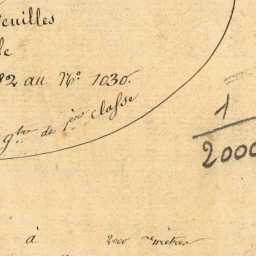 euilles
le
82 au N° 1030.
gbre de 1ère classe
1
2000
à 2000 mètres